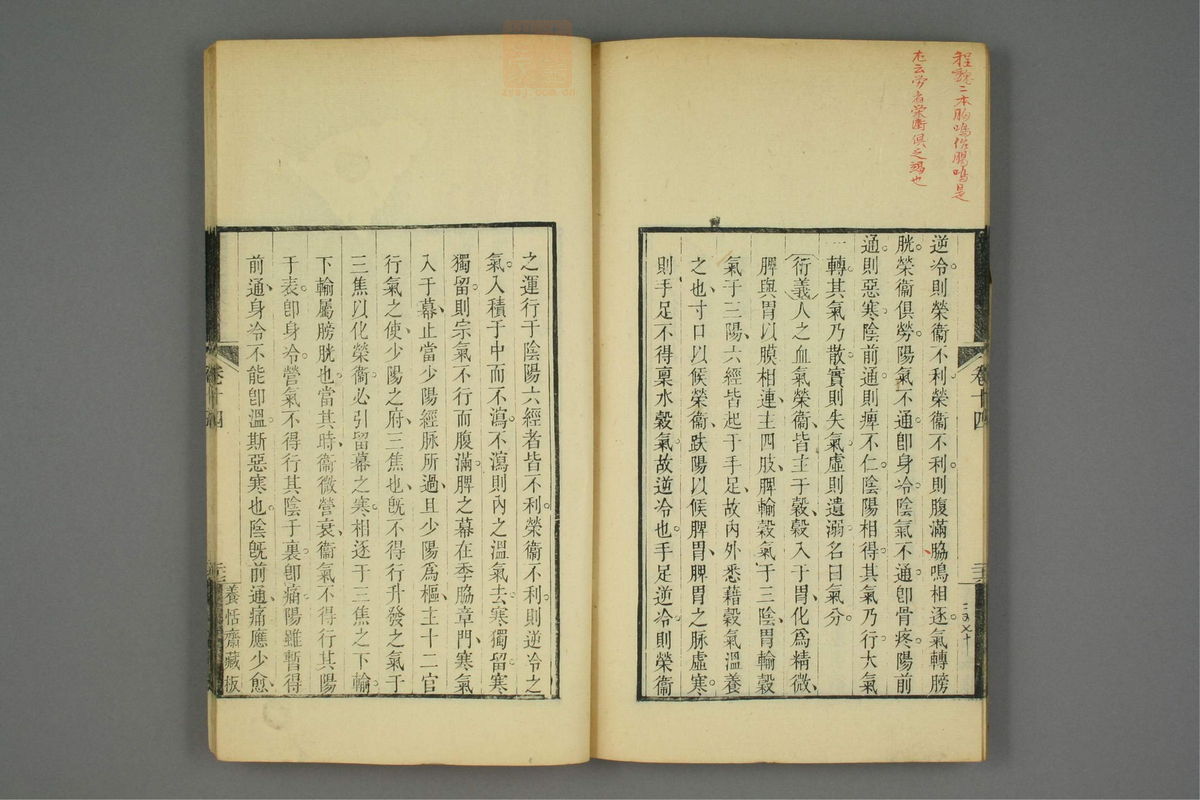 程魏二本脇鳴作腸鳴是
尤云勞者榮衞俱乏竭也
逆冷則榮衞不利榮衞不利則腹滿脇鳴相逐氣轉膀
胱榮衞俱勞陽氣不通卽身冷陰氣不通卽骨疼陽前
通則惡寒陰前通則痺不仁陰陽相得其氣乃行大氣
一轉其氣乃散實則失氣虛則遺溺名曰氣分
衍義人之血氣榮衞皆主于穀穀入于胃化爲精微
脾與胃以膜相連主四肢脾輸穀氣于三陰胃輸穀
氣于三陽六經皆起于手足故內外悉藉穀氣溫養
之也寸口以候榮衞趺陽以候脾胃脾胃之脉虛寒
則手足不得稟水穀氣故逆冷也手足逆冷則榮衞
卷十四
之運行于陰陽六經者皆不利榮衞不利則逆冷之
氣入積于中而不瀉不瀉則內之溫氣去寒獨留寒
獨留則宗氣不行而腹滿脾之募在季脇章門寒氣
入于募止當少陽經脉所過且少陽爲樞主十二官
行氣之使少陽之府三焦也旣不得行升發之氣于
三焦以化榮衞必引留募之寒相逐于三焦之下輸
下輸屬膀胱也當其時衞微營衰衞氣不得行其陽
于表卽身冷營氣不得行其陰于裏卽痛陽雖暫得
前通身冷不能卽溫斯惡寒也陰旣前通痛應少愈
卷十四
養恬齋藏板